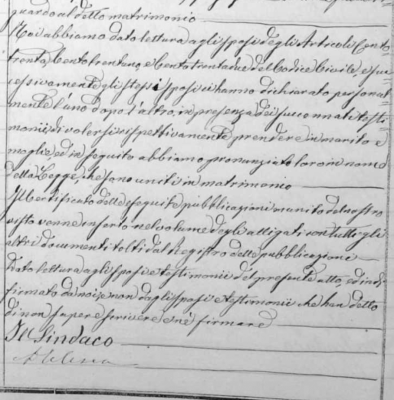 guardo al detto matrimonio
Noi abbiamo dato lettura agli sposi degli Articoli Cento
trenta, Cento trentuno, e Cento trentadue del Codice Civile, e suc
cessivamente gli stessi sposi ci hanno dichiarato personal
mente l'uno dopo l'altro in presenza dei succennati testi
monii, di volersi rispettivamente prendere in marito e
moglie, ed in seguito abbiamo pronunziato loro in nome
della Legge, che sono uniti in matrimonio
Il certificato delle eseguite pubblicazioni munito del nostro
visto venne inserto nel volume degli alligati con tutti gli
altri documenti tolti dal registro delle pubblicazioni
Dato lettura agli sposi e testimonii del presente atto, ed indi
firmato da noi e non dagli sposi e testimonii che han detto
di non sapere scrivere e nè firmare
Il Sindaco